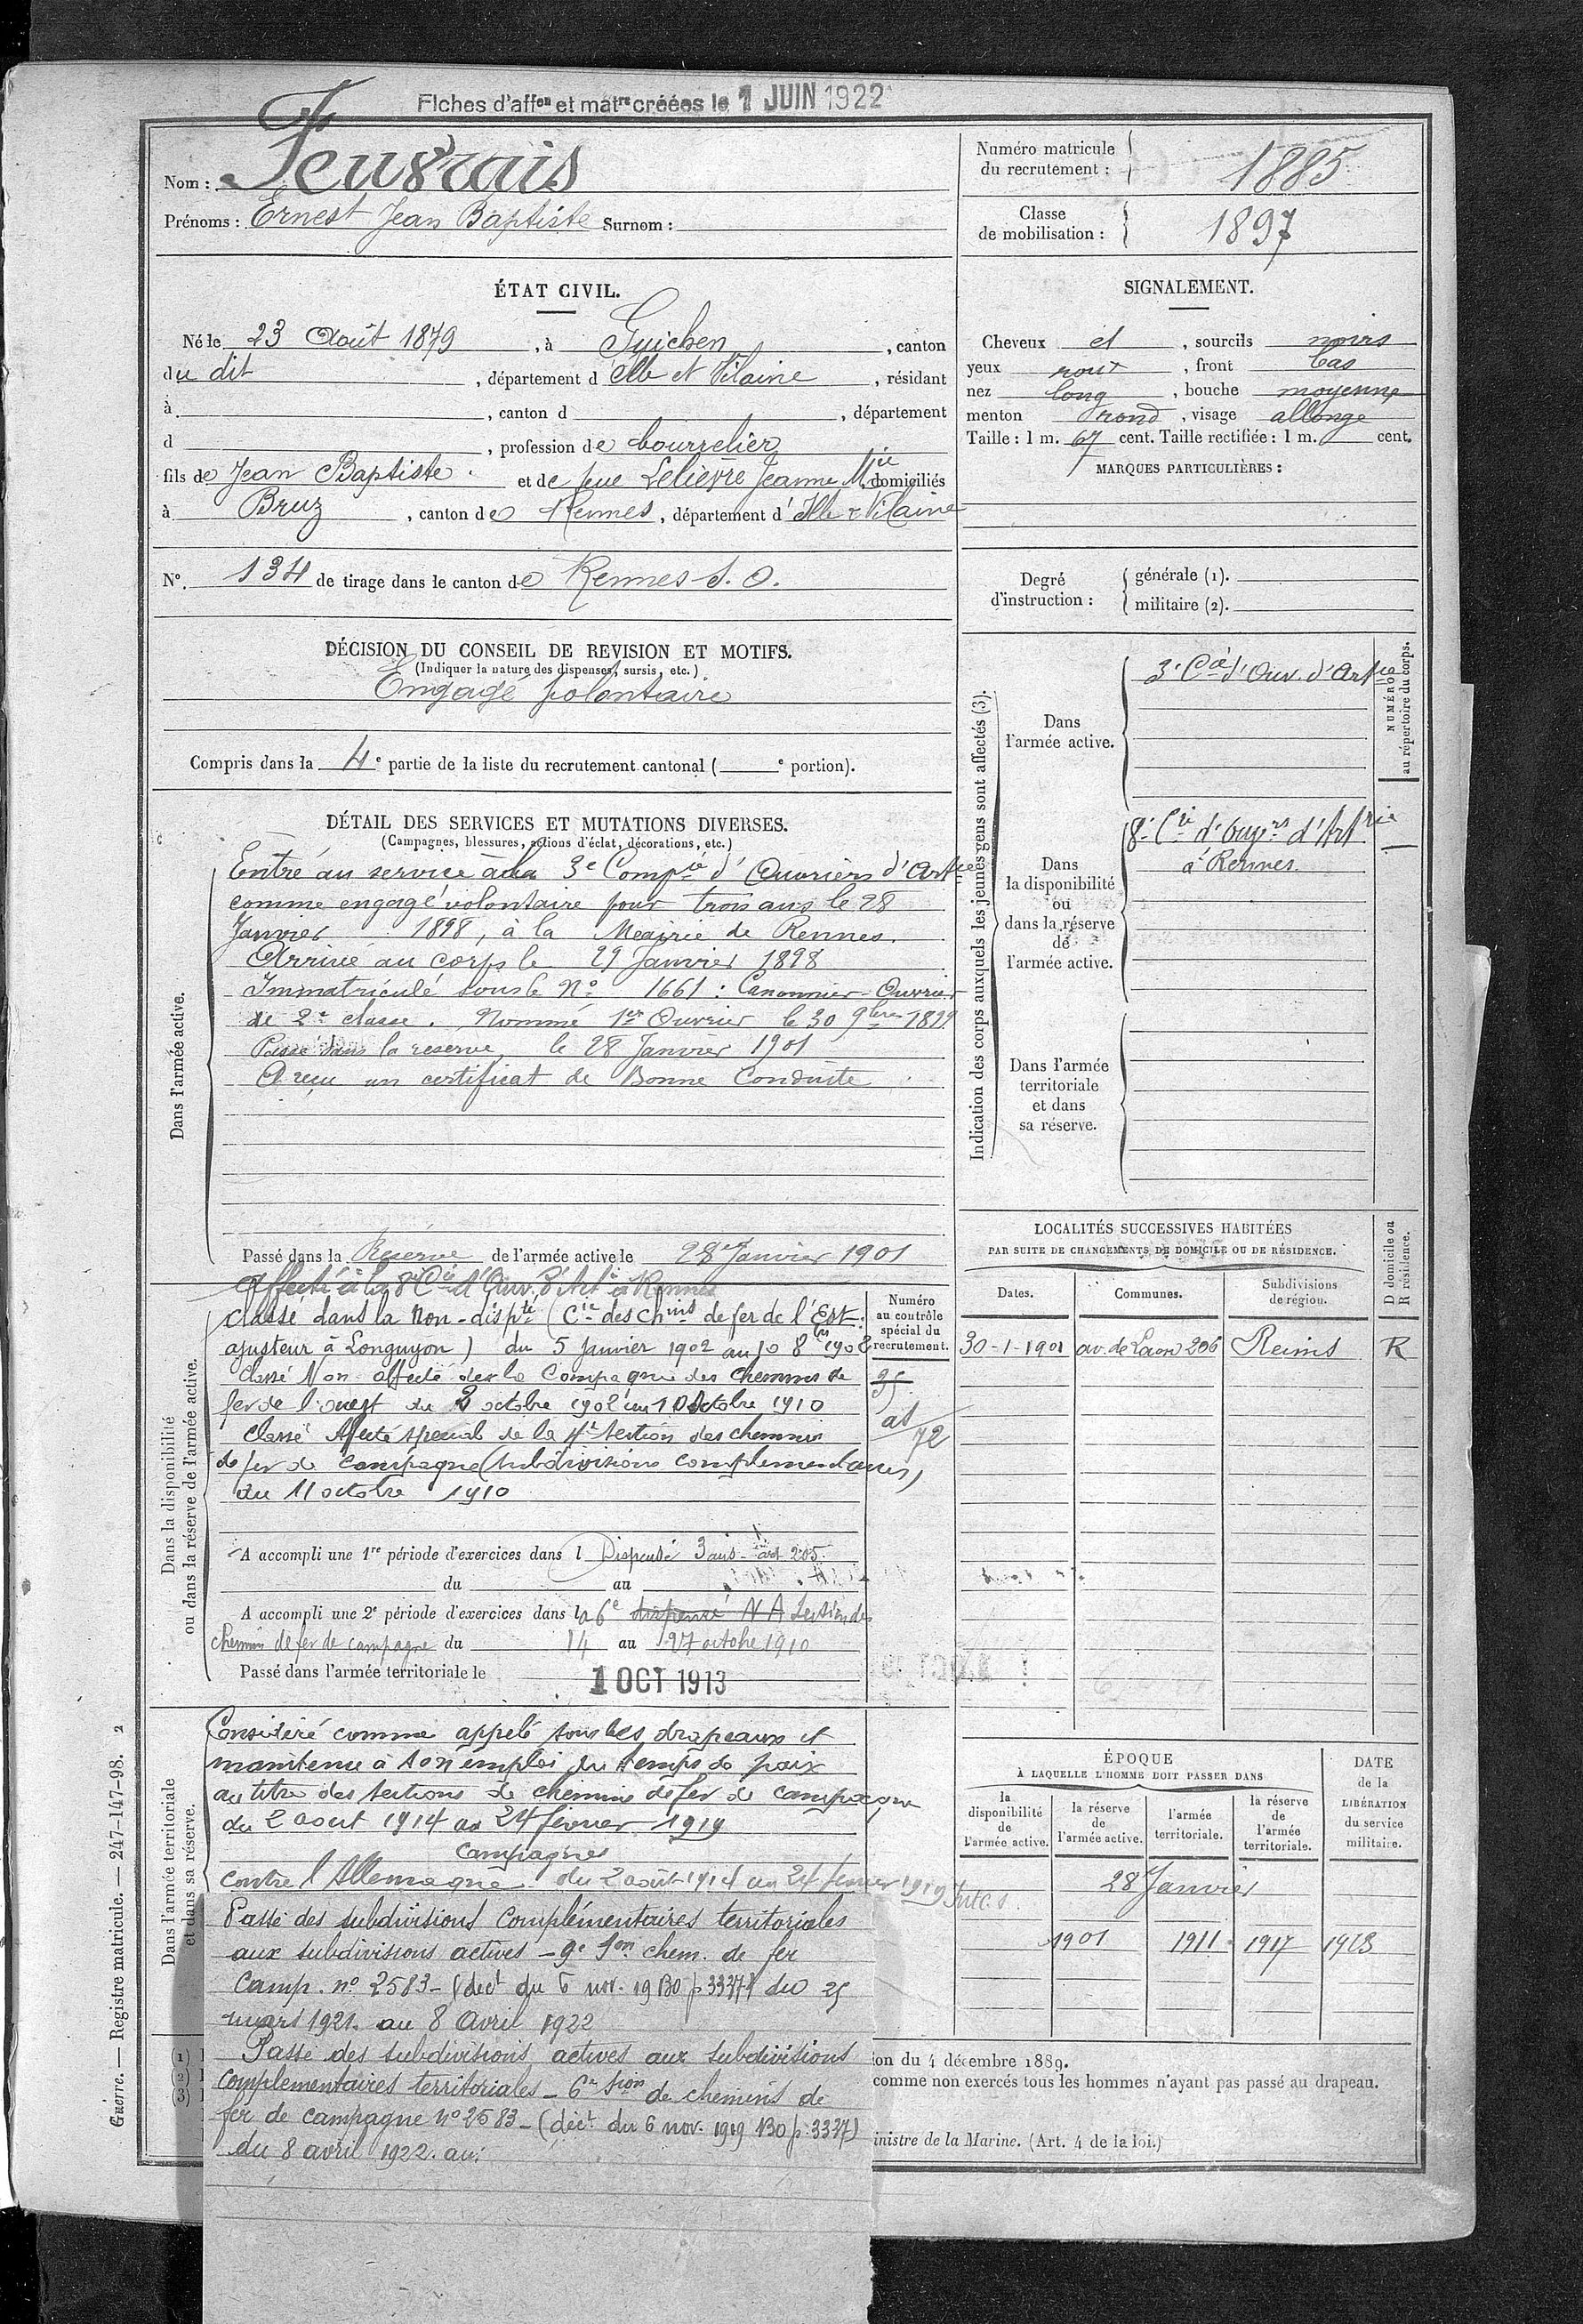 Fiches d'affon et matre créées le 1 JUIN 1922
Nom : Feuvrais
Prénoms : Ernest Jean Baptiste Surnom :
Numéro matricule
du recrutement : 1885
Classe
de mobilisation : 1897
ÉTAT CIVIL.
Né le 23 Août 1879, à Guichen, canton
du dit, département d'Ille et Vilaine, résidant
à , canton d , département
d , profession de bourrelier
fils de Jean Baptiste et de feue Lelièvre Jeanne Mie domiciliés
à Bruz, canton de Rennes, département d'Ille & Vilaine
N°. 134 de tirage dans le canton de Rennes S. O.
SIGNALEMENT.
Cheveux et , sourcils noirs
yeux roux , front bas
nez long , bouche moyenne
menton rond , visage allongé
Taille : 1 m. 67 cent. Taille rectifiée : 1 m. cent.
MARQUES PARTICULIÈRES :
Degré
d'instruction :
générale (1).
militaire (2).
DÉCISION DU CONSEIL DE REVISION ET MOTIFS.
(Indiquer la nature des dispenses, sursis, etc.)
Engagé volontaire
Compris dans la 4e partie de la liste du recrutement cantonal ( e portion).
DÉTAIL DES SERVICES ET MUTATIONS DIVERSES.
(Campagnes, blessures, actions d'éclat, décorations, etc.)
Dans l'armée active.
Entré au service à la 3e Compie d'Ouvriers d'Artie
comme engagé volontaire pour trois ans le 28
Janvier 1898, à la Mairie de Rennes.
Arrivé au corps le 29 Janvier 1898
Immatriculé sous le N° 1661 : Canonnier-Ouvrier
de 2e classe. Nommé 1er Ouvrier le 30 9bre 1899
Passé dans la réserve, le 28 Janvier 1901
A reçu un certificat de Bonne Conduite
Passé dans la Réserve de l'armée active le 28 Janvier 1901
Affecté à la 8e Cie d'Ouv. d'Art. à Rennes
Dans la disponibilité
ou dans la réserve de l'armée active.
Classé dans la Non-dispté (Cie des Chins de fer de l'Est.
ajusteur à Longuyon) du 5 Janvier 1902 au 10 8bre 1902
Classé Non affecté de la Compagnie des Chemins de
fer de l'ouest du 2 octobre 1902 au 10 octobre 1910
Classé Affecté spécial de la 4e section des chemins
de fer de campagne (subdivisions complémentaires)
du 11 octobre 1910
Numéro
au contrôle
spécial du
recrutement.
as/72
A accompli une 1re période d'exercices dans l Dispensé 3 avis art 205
du au
A accompli une 2e période d'exercices dans la 6e dispensé N A section des
chemins de fer de campagne du 14 au 27 octobre 1910
Passé dans l'armée territoriale le 1 OCT 1913
Dans l'armée territoriale
et dans sa réserve.
Considéré comme appelé sous les drapeaux et
maintenu à son emploi du temps de paix
au titre des sections de chemins de fer de campagne
du 2 aout 1914 au 24 février 1919
Campagnes
contre l'Allemagne du 2 août 1914 au 24 février 1919
Passé des subdivisions complémentaires territoriales
aux subdivisions actives - 9e Son chem. de fer
Camp. n° 2583 - (déct du 6 nov. 19 BO p 3337) du 25
mars 1921. au 8 Avril 1922
Passé des subdivisions actives aux subdivisions
complémentaires territoriales - 6e Sion de chemins de
fer de campagne N° 2583 - (déct du 6 nov. 1919 BO p. 3337)
du 8 avril 1922. au:
Indication des corps auxquels les jeunes gens sont affectés (3).
NUMÉRO
au répertoire du corps.
Dans
l'armée active.
3e Cie d'Ouv. d'Artie
Dans
la disponibilité
ou
dans la réserve
de
l'armée active.
8e Cie d'Ouvrs d'Artrie
à Rennes.
Dans l'armée
territoriale
et dans
sa réserve.
LOCALITÉS SUCCESSIVES HABITÉES
PAR SUITE DE CHANGEMENTS DE DOMICILE OU DE RÉSIDENCE.
Dates. Communes. Subdivisions
de région. D domicile ou
R résidence.
30-1-1901 av. de Laon 206 Reims R
ÉPOQUE
À LAQUELLE L'HOMME DOIT PASSER DANS
DATE
de la
LIBÉRATION
du service
militaire.
la
disponibilité
de
l'armée active.
la réserve
de
l'armée active.
l'armée
territoriale.
la réserve
de
l'armée
territoriale.
28 Janvier
1901 1911 1917 1923
(1)
(2)
(3)
ion du 4 décembre 1889.
comme non exercés tous les hommes n'ayant pas passé au drapeau.
inistre de la Marine. (Art. 4 de la loi.)
Guerre. — Registre matricule. — 247-147-98. 2